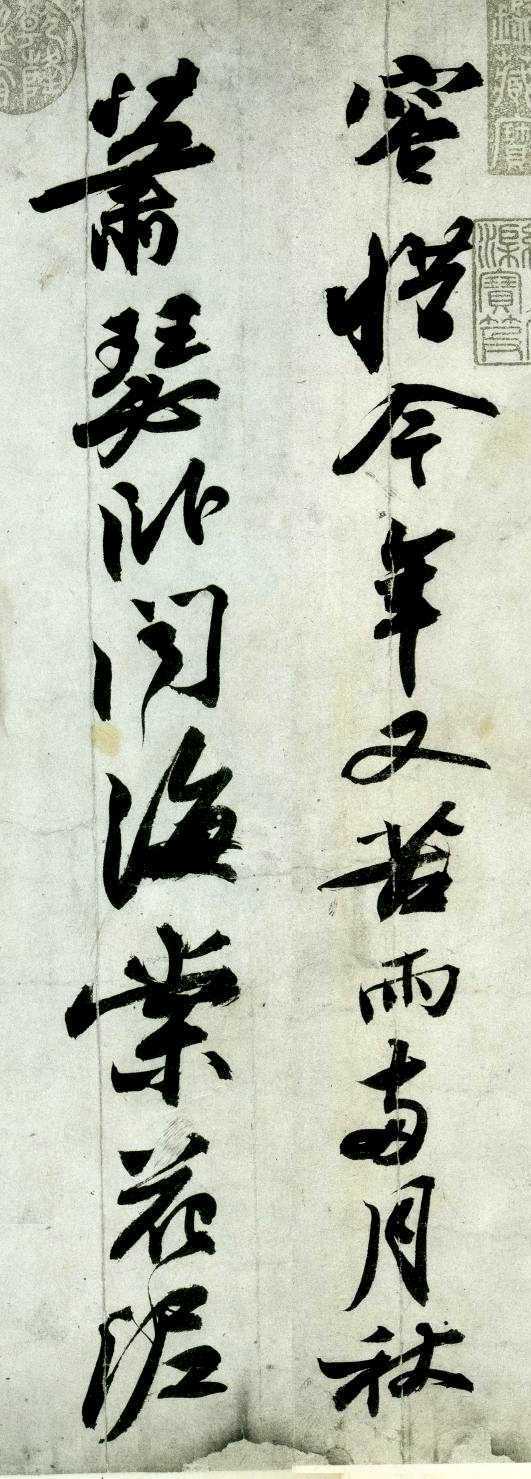 容惜今年又苦雨兩月秋
蕭瑟臥聞海棠花泥